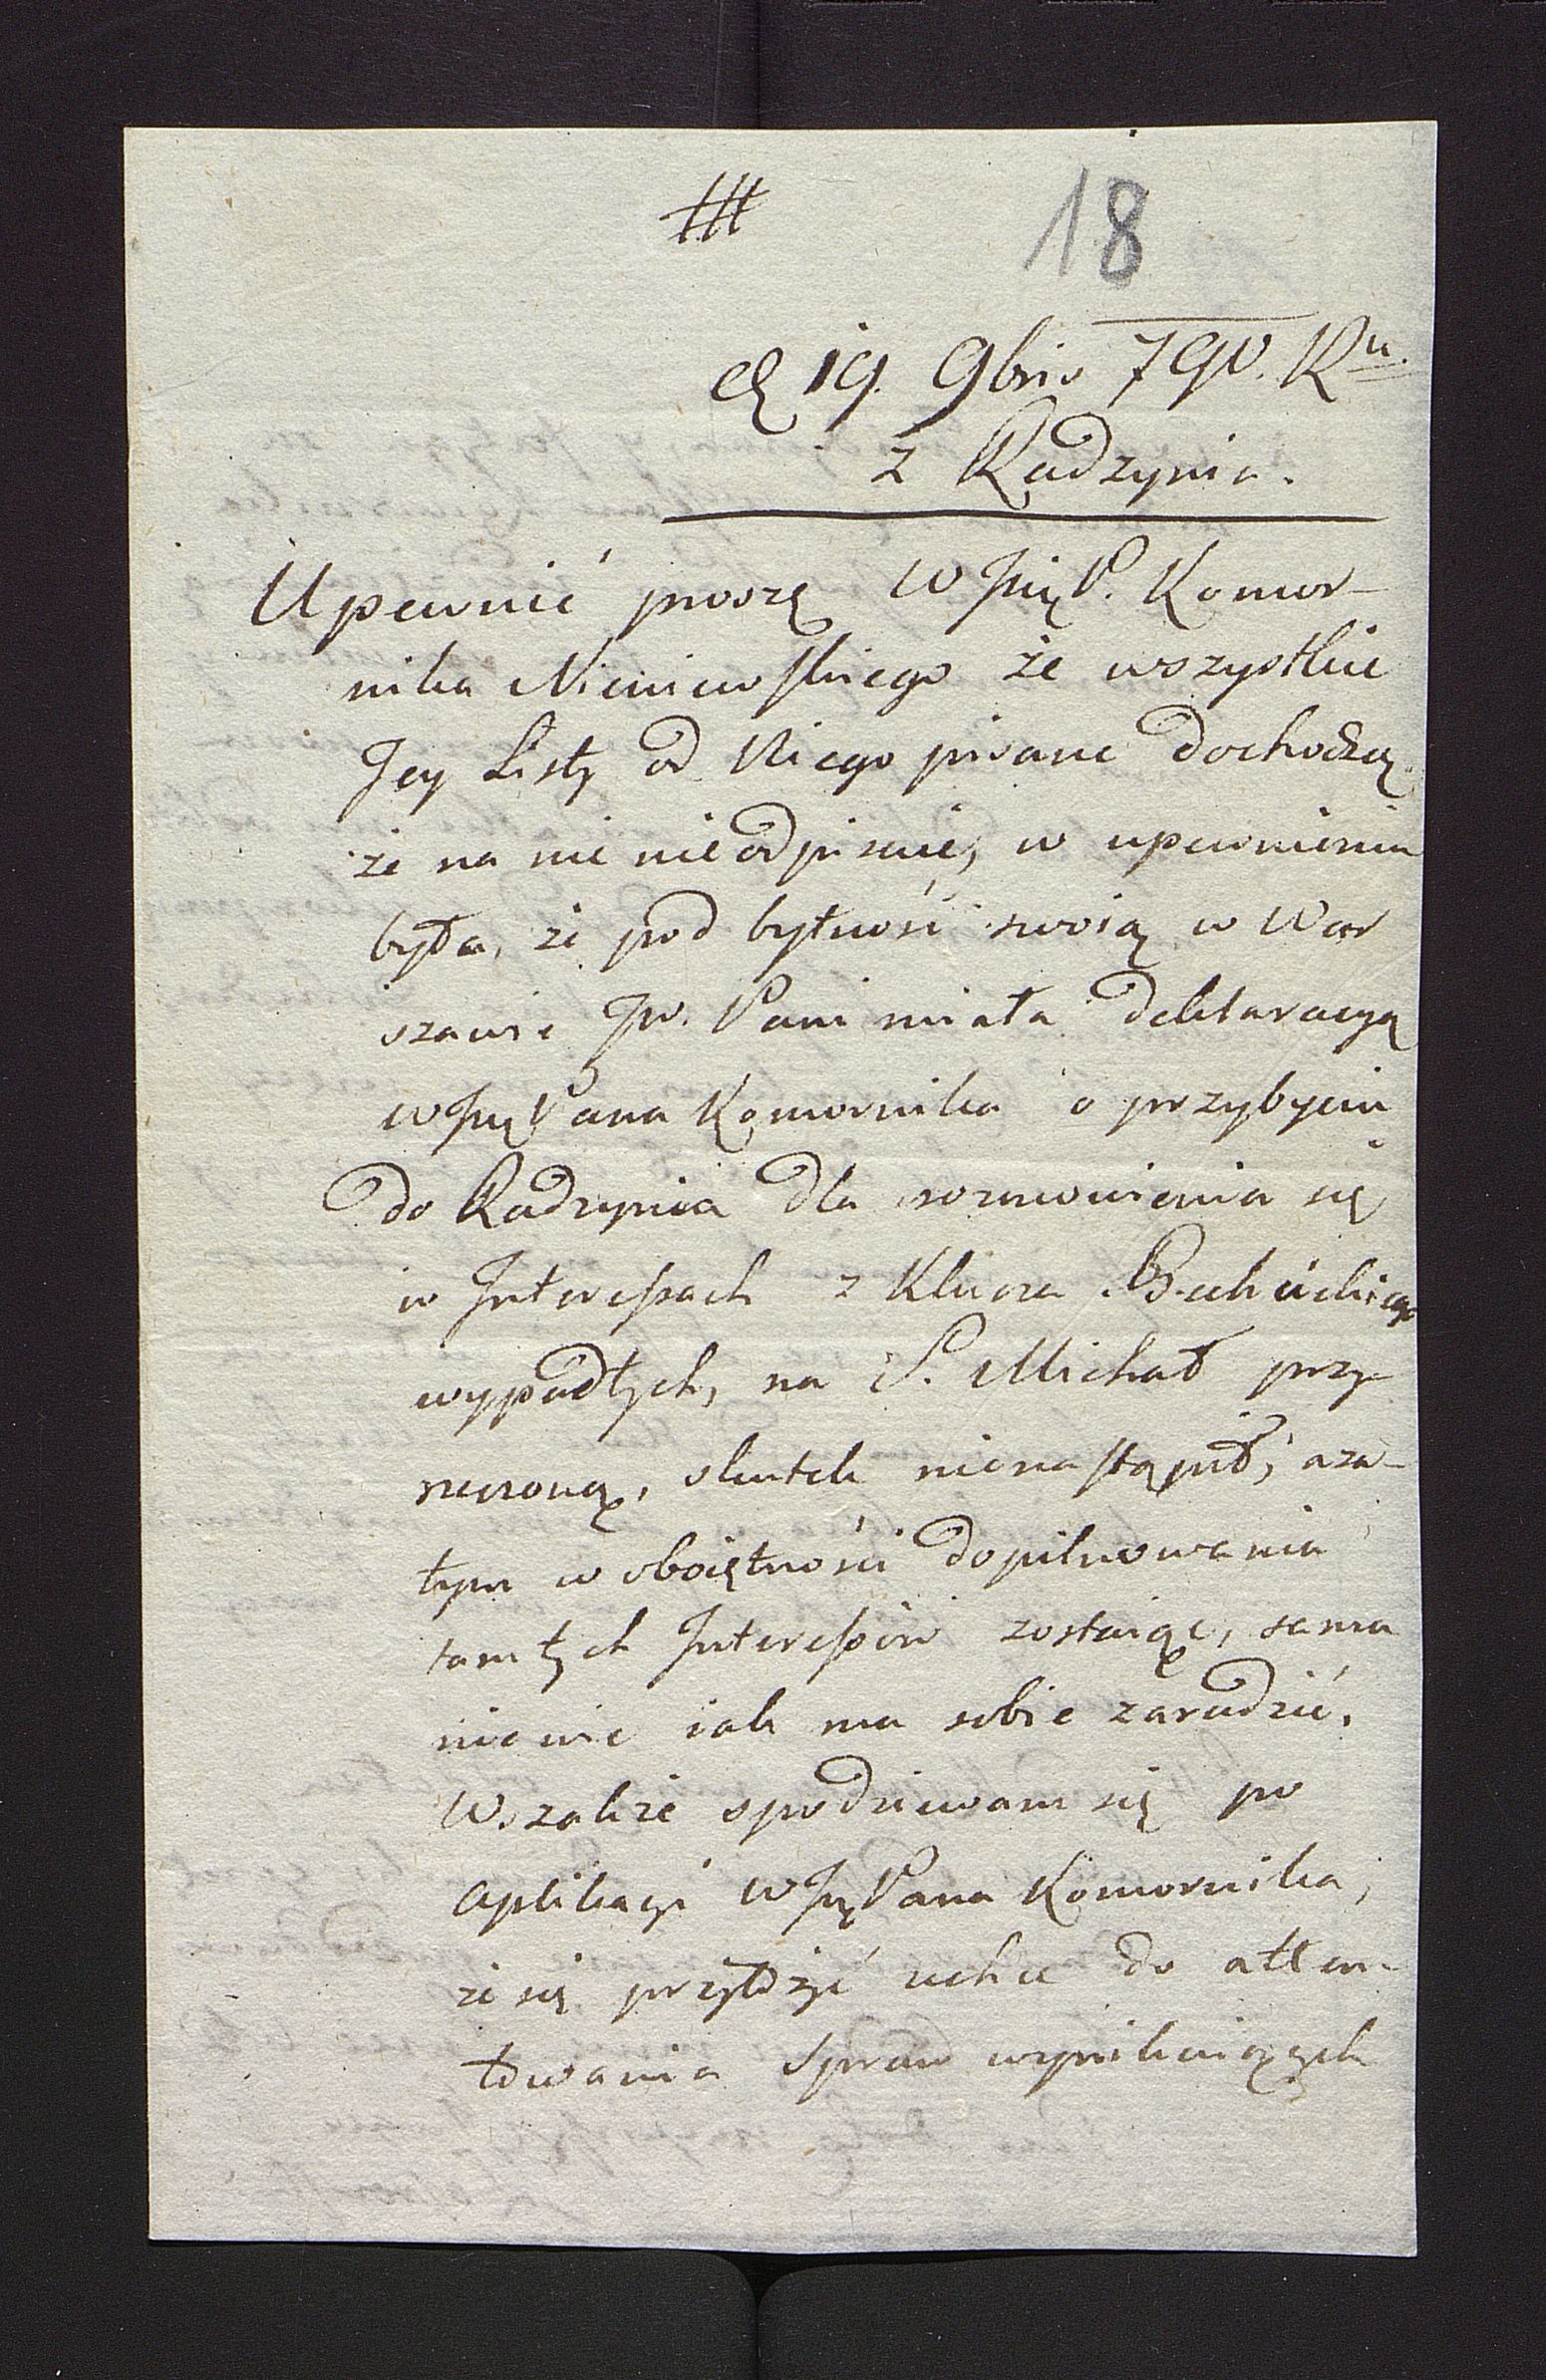 18
19. 9bris 790. Ru.
z Radzynia.
Upewnić proszę WJmęP. Komor-
nika Niemiewskiego że wszystkie
Jey Listy od Niego pisane dochodzą
że na nie nie odpisuie, w upewnieniu
była, że pod bytność swoią w War
szawie Jw. Pani miała deklaracyą
WJmęPana Komornika o przybyciu
do Radzynia dla rozmowienia się
w Interessach z Klucza
wypadłych, na S. Michał przy-
rzeczoną, skutek nienastąpił, aza-
tym w oboiętności dopilnowania
tamtych Interessów zostaiąc, sama
niewie iak ma sobie zaradzić.
Wszakże spodziewam się po
aplikacyi WJmęPana Komornika,
że się przyłożyć zechce do atten-
towania spraw wynikaiących